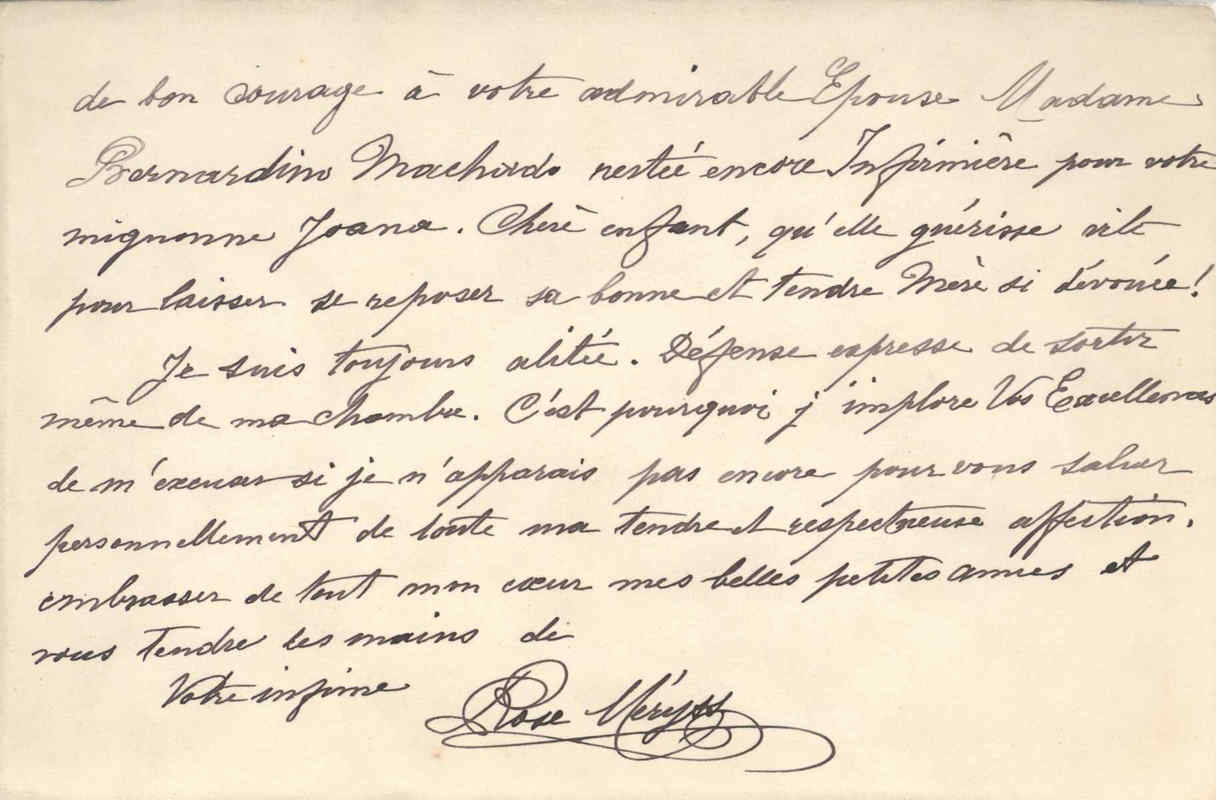 de bon courage à votre admirable Epouse Madame
Bernardino Machado restée encore Infirmière pour votre
mignonne Joana. Chère enfant, qu'elle guérisse vite
pour laisser se reposer sa bonne et tendre Mère si dévouée!
Je suis toujours alitée. Défense expresse de sortir
même de ma chambre. C'est pourquoi j'implore Vos Excellences
de m'excuser si je n'apparais pas encore pour vous saluer
personnellement de toute ma tendre et respectueuse affection,
embrasser de tout mon cœur mes belles petites amies et
vous tendre les mains de
Votre infime
Rose Méryss